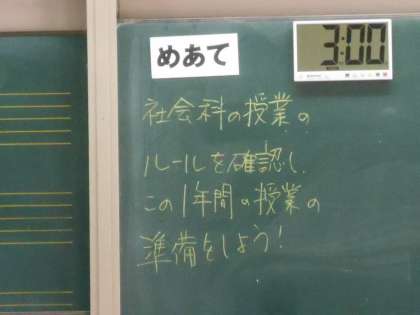 めあて
3:00
社会科の授業の
ルールを確認し、
この1年間の授業の
準備をしよう!